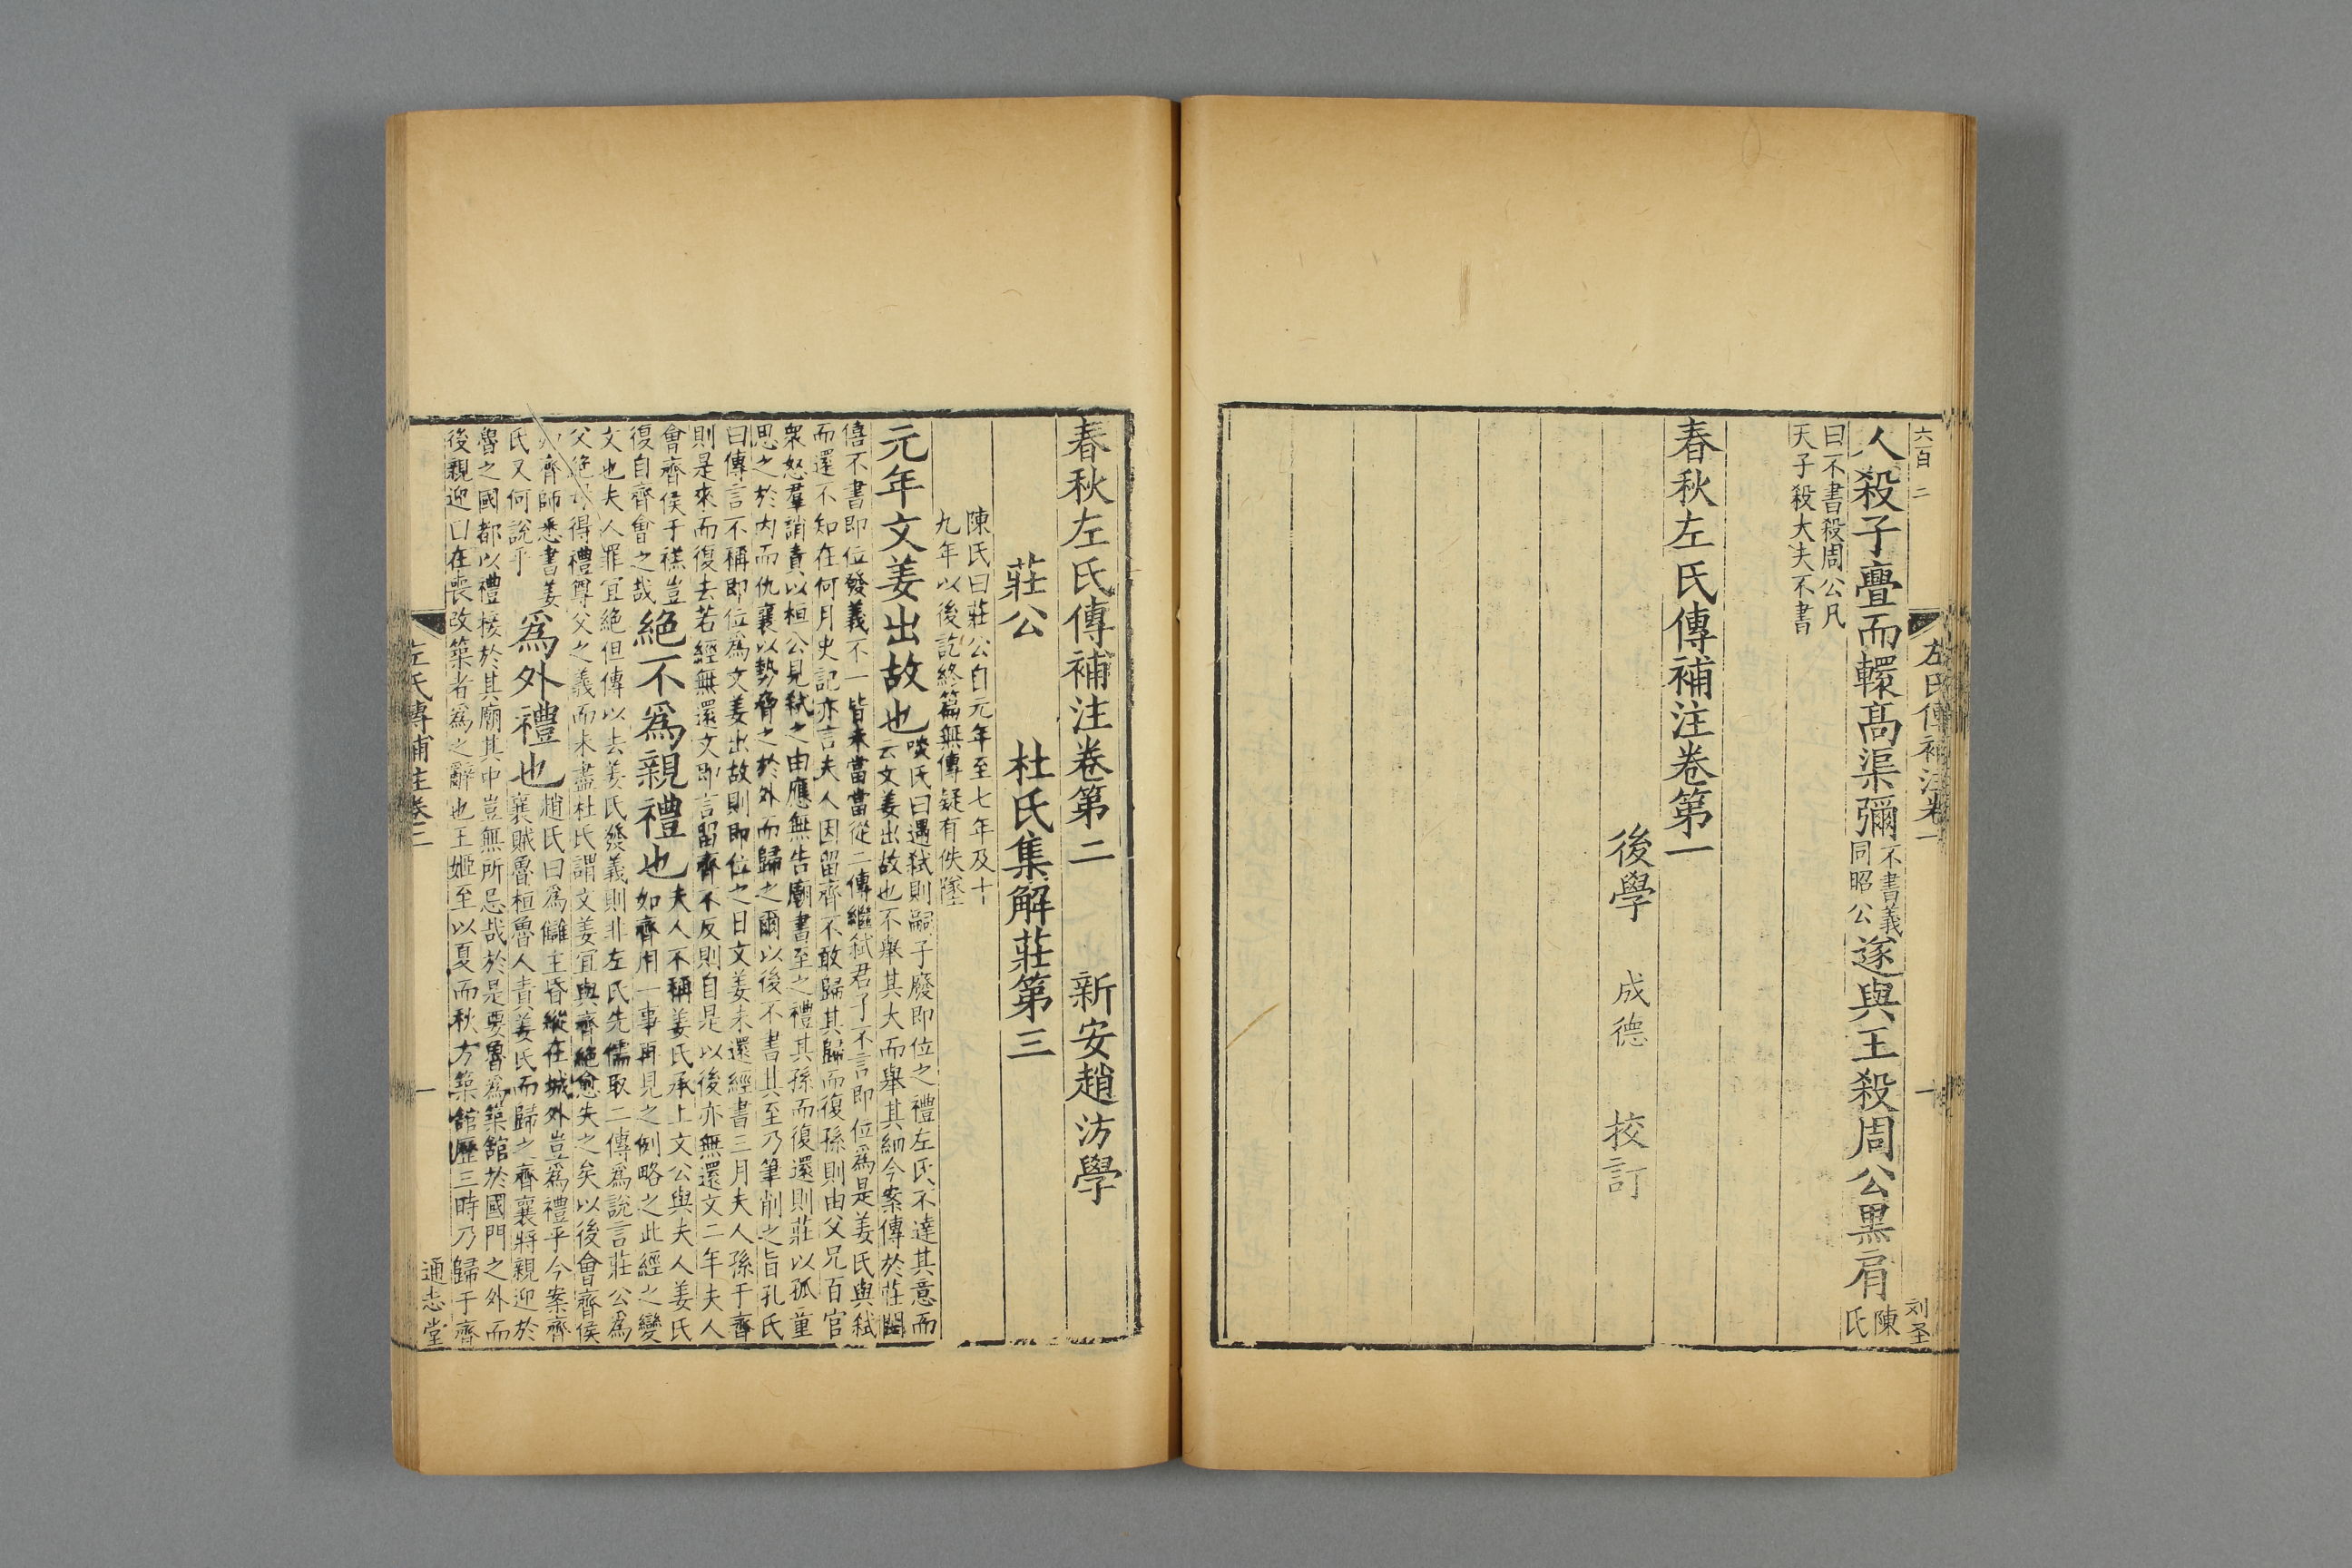 六百二
左氏傳補注卷一
刘圣
人殺子亹而轘高渠彌不書義同昭公遂與王殺周公黑肩陳氏
曰不書殺周公凡
天子殺大夫不書
春秋左氏傳補注卷第一
後學 成德 校訂
春秋左氏傳補注卷第二 新安趙汸學
莊公 杜氏集解莊第三
陳氏曰莊公自元年至七年及十
九年以後訖終篇無傳疑有佚墜
元年文姜出故也
啖氏曰遇弒則嗣子廢即位之禮左氏不達其意而
云文姜出故也不舉其大而舉其細今案傳於莊閔
僖不書即位發義不一皆未當當從二傳繼弒君子不言即位為是姜氏與弒
而還不知在何月史記亦言夫人因留齊不敢歸其歸而復孫則由父兄百官
衆怒羣誚責以桓公見弒之由應無告廟書至之禮其孫而復還則莊以孤童
思之於內而仇襄以勢脅之於外而歸之爾以後不書其至乃筆削之旨孔氏
曰傳言不稱即位為文姜出故則即位之日文姜未還經書三月夫人孫于齊
則是來而復去若經無還文即言留齊不反則自是以後亦無還文二年夫人
會齊侯于禚豈
復自齊會之哉
絕不為親禮也
夫人不稱姜氏承上文公與夫人姜氏
如齊用一事再見之例略之此經之變
文也夫人罪宜絕但傳以去姜氏發義則非左氏先儒取二傳為說言莊公為
父絕母得禮尊父之義而未盡杜氏謂文姜宜與齊絕愈失之矣以後會齊侯
如齊師悉書姜
氏又何說乎
為外禮也
趙氏曰為讎主昏縱在城外豈為禮乎今案齊
襄賊魯桓魯人責姜氏而歸之齊襄將親迎於
魯之國都以禮接於其廟其中豈無所忌哉於是要魯為築館於國門之外而
後親迎曰在喪改築者為之辭也王姬至以夏而秋方築館歷三時乃歸于齊
左氏傳補注卷二
一
通志堂